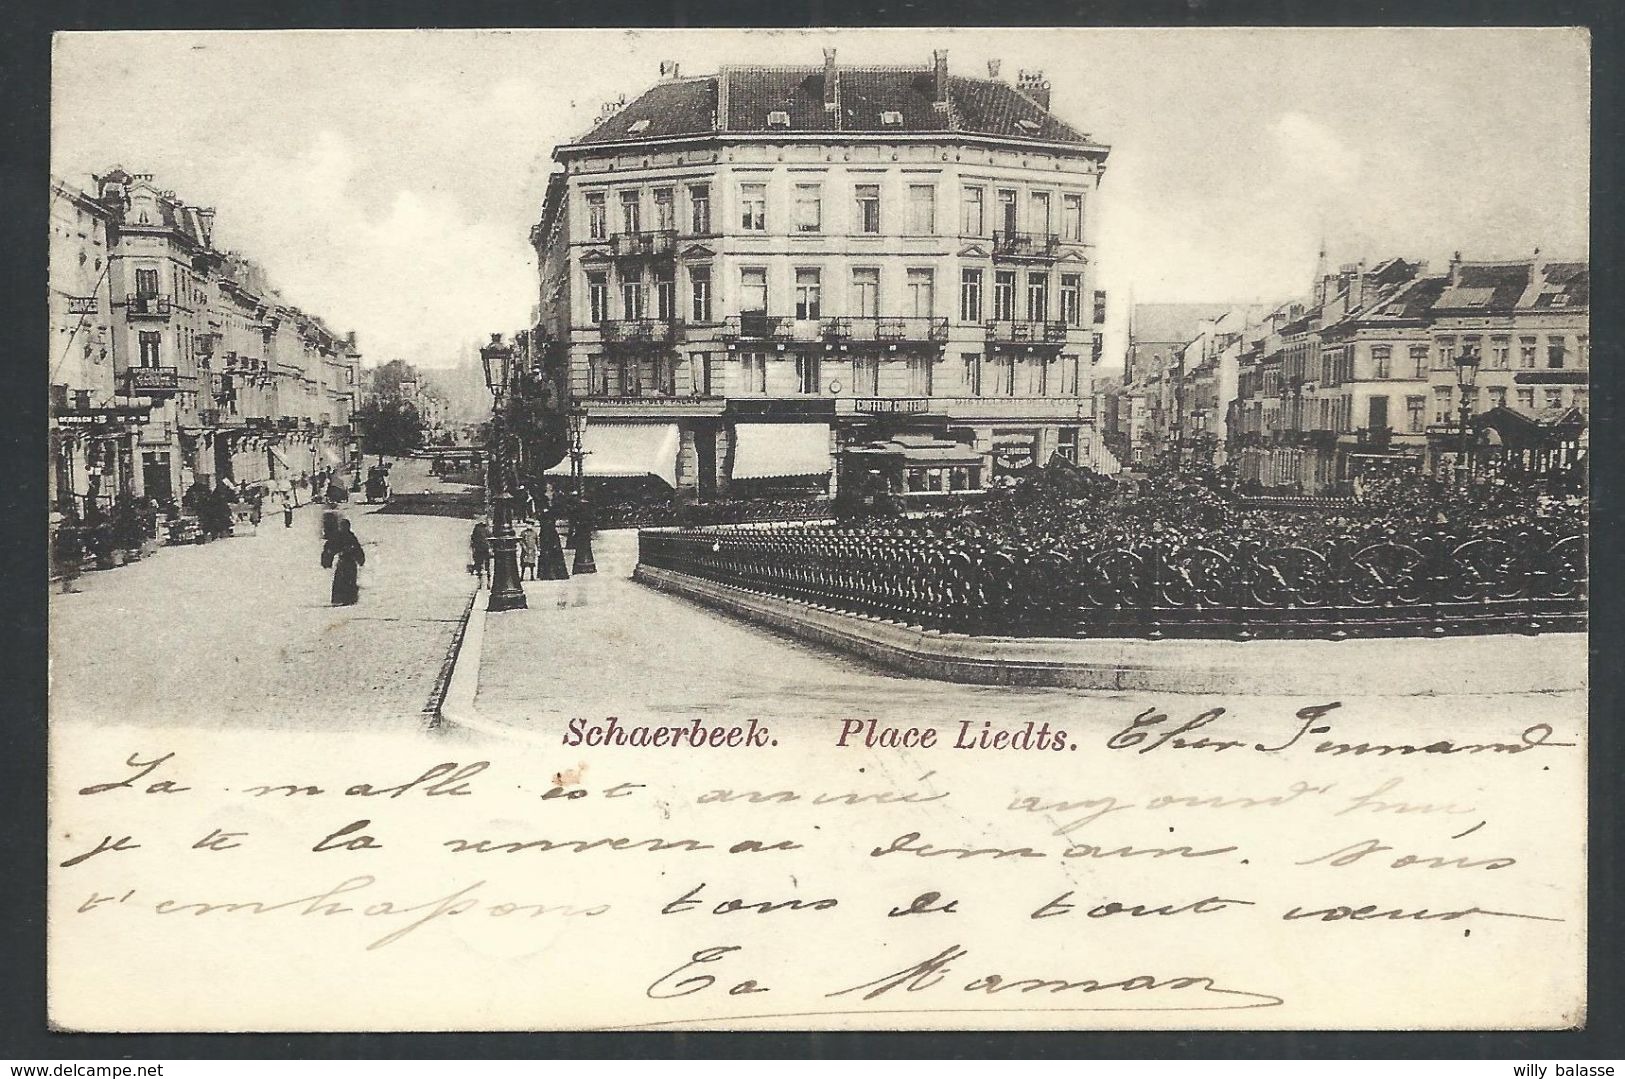 COIFFEUR COIFFEUR
Schaerbeek. Place Liedts. Cher Fernand.
La malle est arrivée aujourd'hui,
je te la renverrai demain. Nous
t'embrassons tous de tout coeur.
Ta Maman
willy balasse